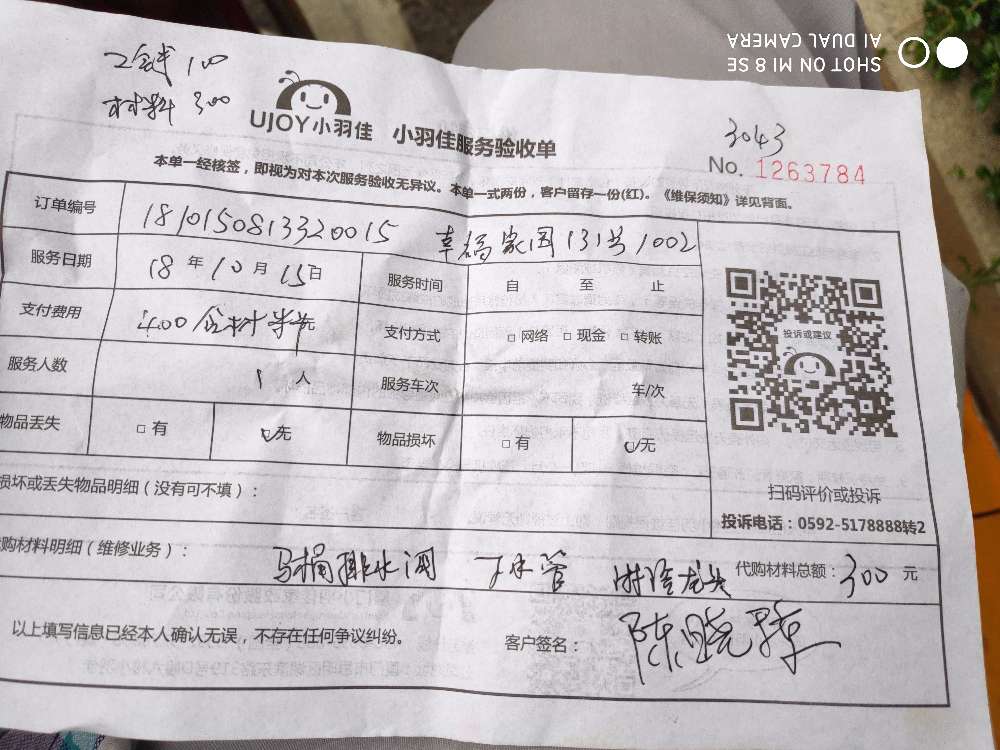 SHOT ON MI 8 SE
AI DUAL CAMERA
工钱 100
材料 300
UJOY小羽佳 小羽佳服务验收单
3043
No. 1263784
本单一经核签，即视为对本次服务验收无异议。本单一式两份，客户留存一份(红)。《维保须知》详见背面。
订单编号 1810150813320015 幸福家园131号1002
服务日期 18年10月15日 服务时间 自 至 止
支付费用 400 含材料 元 支付方式 □网络 □现金 □转账
服务人数 1人 服务车次 车/次
物品丢失 □有 ☑无 物品损坏 □有 ☑无
投诉或建议
扫码评价或投诉
投诉电话：0592-5178888转2
损坏或丢失物品明细（没有可不填）：
购材料明细（维修业务）： 马桶排水阀 下水管 淋浴龙头 代购材料总额：300元
以上填写信息已经本人确认无误，不存在任何争议纠纷。 客户签名： 陈晓